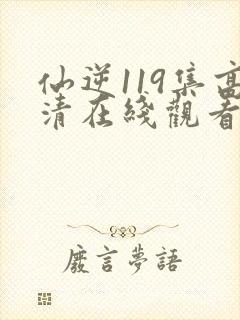 仙逆119集高
清在綫觀看
廢言夢語